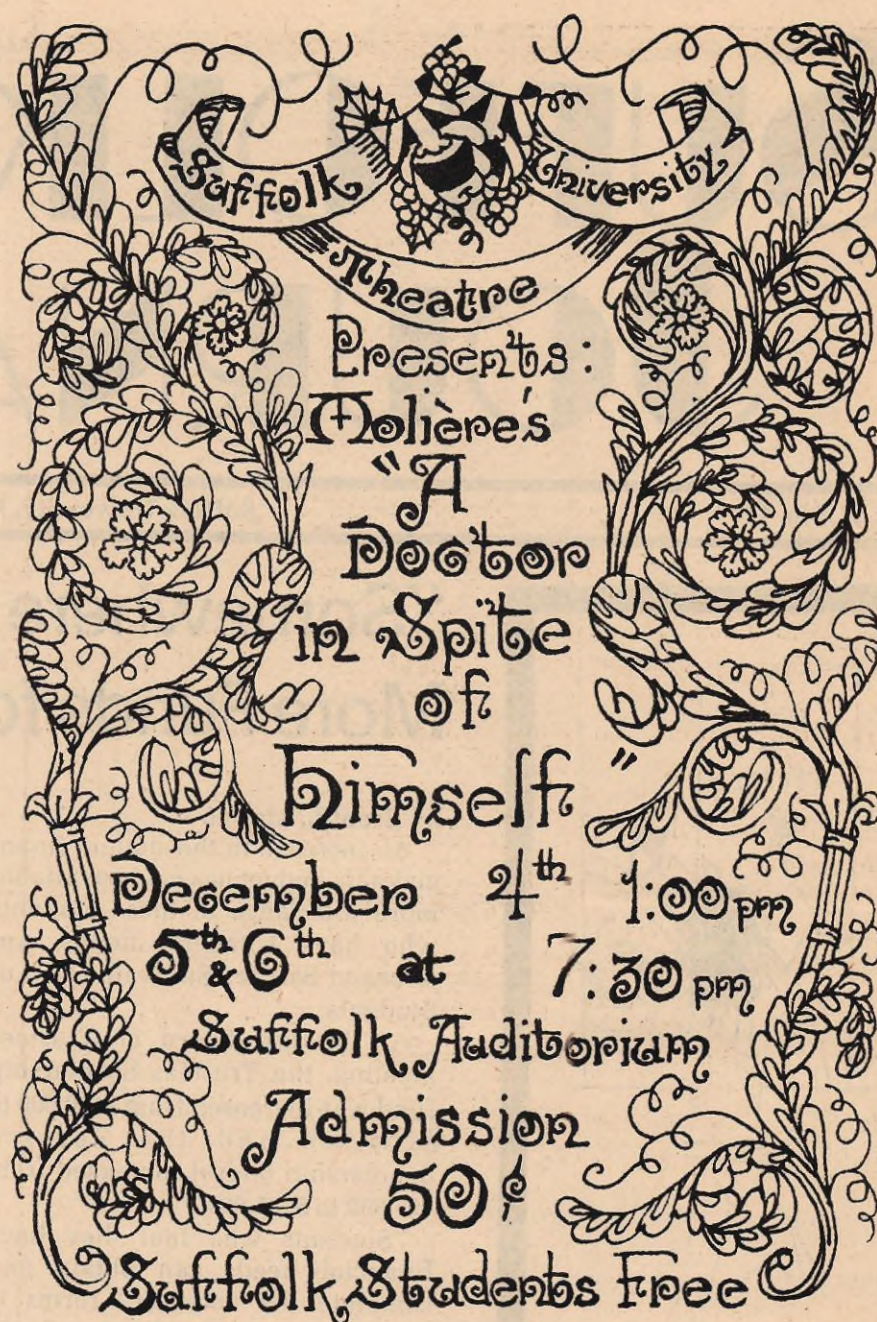 Suffolk University
Theatre
Presents:
Molière's
"A
Doctor
in Spite
of
Himself"
December 4th 1:00 pm
5th & 6th at 7:30 pm
Suffolk Auditorium
Admission
50¢
Suffolk Students Free